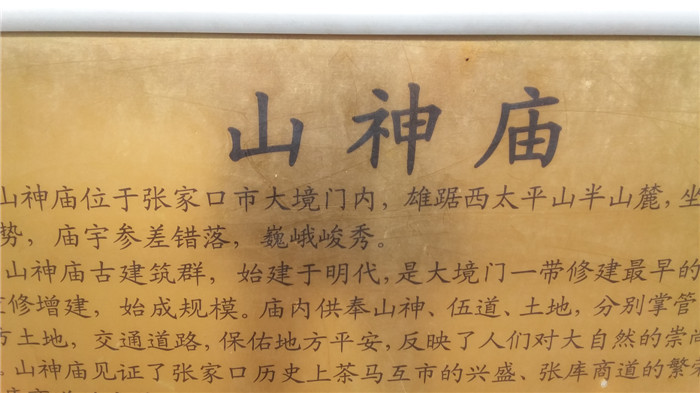 山神庙
山神庙位于张家口市大境门内，雄踞西太平山半山麓，坐
势，庙宇参差错落，巍峨峻秀。
山神庙古建筑群，始建于明代，是大境门一带修建最早的
修增建，始成规模。庙内供奉山神、伍道、土地，分别掌管
土地，交通道路，保佑地方平安，反映了人们对大自然的崇尚
。山神庙见证了张家口历史上茶马互市的兴盛、张库商道的繁荣